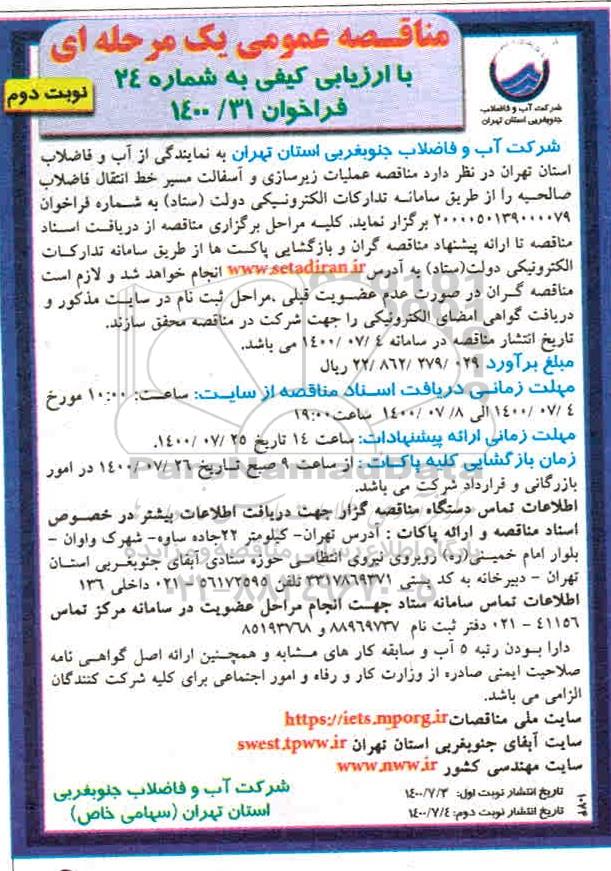 مناقصه عمومی یک مرحله ای
با ارزیابی کیفی به شماره ۲۴
فراخوان ۳۱/ ۱۴۰۰
نوبت دوم
شرکت آب و فاضلاب
جنوبغربی استان تهران
شرکت آب و فاضلاب جنوبغربی استان تهران به نمایندگی از آب و فاضلاب
استان تهران در نظر دارد مناقصه عملیات زیرسازی و آسفالت مسیر خط انتقال فاضلاب
صالحیه را از طریق سامانه تدارکات الکترونیکی دولت (ستاد) به شماره فراخوان
۲۰۰۰۰۵۰۱۳۹۰۰۰۰۷۹ برگزار نماید. کلیه مراحل برگزاری مناقصه از دریافت اسناد
مناقصه تا ارائه پیشنهاد مناقصه گران و بازگشایی پاکت ها از طریق سامانه تدارکات
الکترونیکی دولت(ستاد) به آدرس www.setadiran.ir انجام خواهد شد و لازم است
مناقصه گران در صورت عدم عضویت قبلی ،مراحل ثبت نام در سایت مذکور و
دریافت گواهی امضای الکترونیکی را جهت شرکت در مناقصه محقق سازند.
تاریخ انتشار مناقصه در سامانه ۴ /۰۷ /۱۴۰۰ می باشد.
مبلغ برآورد ۰۲۹ /۲۷۹ /۸۶۲ /۲۲ ریال
مهلت زمانی دریافت اسناد مناقصه از سایت: ساعت: ۱۰:۰۰ مورخ
۴ /۰۷ /۱۴۰۰ الی ۸/ ۰۷ /۱۴۰۰ ساعت ۱۹:۰۰
مهلت زمانی ارائه پیشنهادات: ساعت ۱۴ تاریخ ۲۵ /۰۷ /۱۴۰۰.
زمان بازگشایی کلیه پاکات : از ساعت ۹ صبح تاریخ ۲۶ /۰۷ /۱۴۰۰ در امور
بازرگانی و قرارداد شرکت می باشد.
اطلاعات تماس دستگاه مناقصه گزار جهت دریافت اطلاعات بیشتر در خصوص
اسناد مناقصه و ارائه پاکات : آدرس تهران- کیلومتر ۲۲جاده ساوه- شهرک واوان -
بلوار امام خمینی(ره) روبروی نیروی انتظامی حوزه ستادی آبفای جنوبغربی استان
تهران - دبیرخانه به کد پستی ۳۳۱۷۸۶۹۳۷۱ تلفن ۵۶۱۷۲۵۹۵ - ۰۲۱ داخلی ۱۳۶
اطلاعات تماس سامانه ستاد جهت انجام مراحل عضویت در سامانه مرکز تماس
۴۱۱۵۶ - ۰۲۱ دفتر ثبت نام ۸۸۹۶۹۷۳۷ و ۸۵۱۹۳۷۶۸
دارا بودن رتبه ۵ آب و سابقه کار های مشابه و همچنین ارائه اصل گواهی نامه
صلاحیت ایمنی صادره از وزارت کار و رفاه و امور اجتماعی برای کلیه شرکت کنندگان
الزامی می باشد.
سایت ملی مناقصات https://iets.mporg.ir
سایت آبفای جنوبغربی استان تهران swest.tpww.ir
سایت مهندسی کشور www.nww.ir
تاریخ انتشار نوبت اول: ۱۴۰۰/۷/۳
تاریخ انتشار نوبت دوم: ۱۴۰۰/۷/۴
شرکت آب و فاضلاب جنوبغربی
استان تهران (سهامی خاص)
ParsNamadData